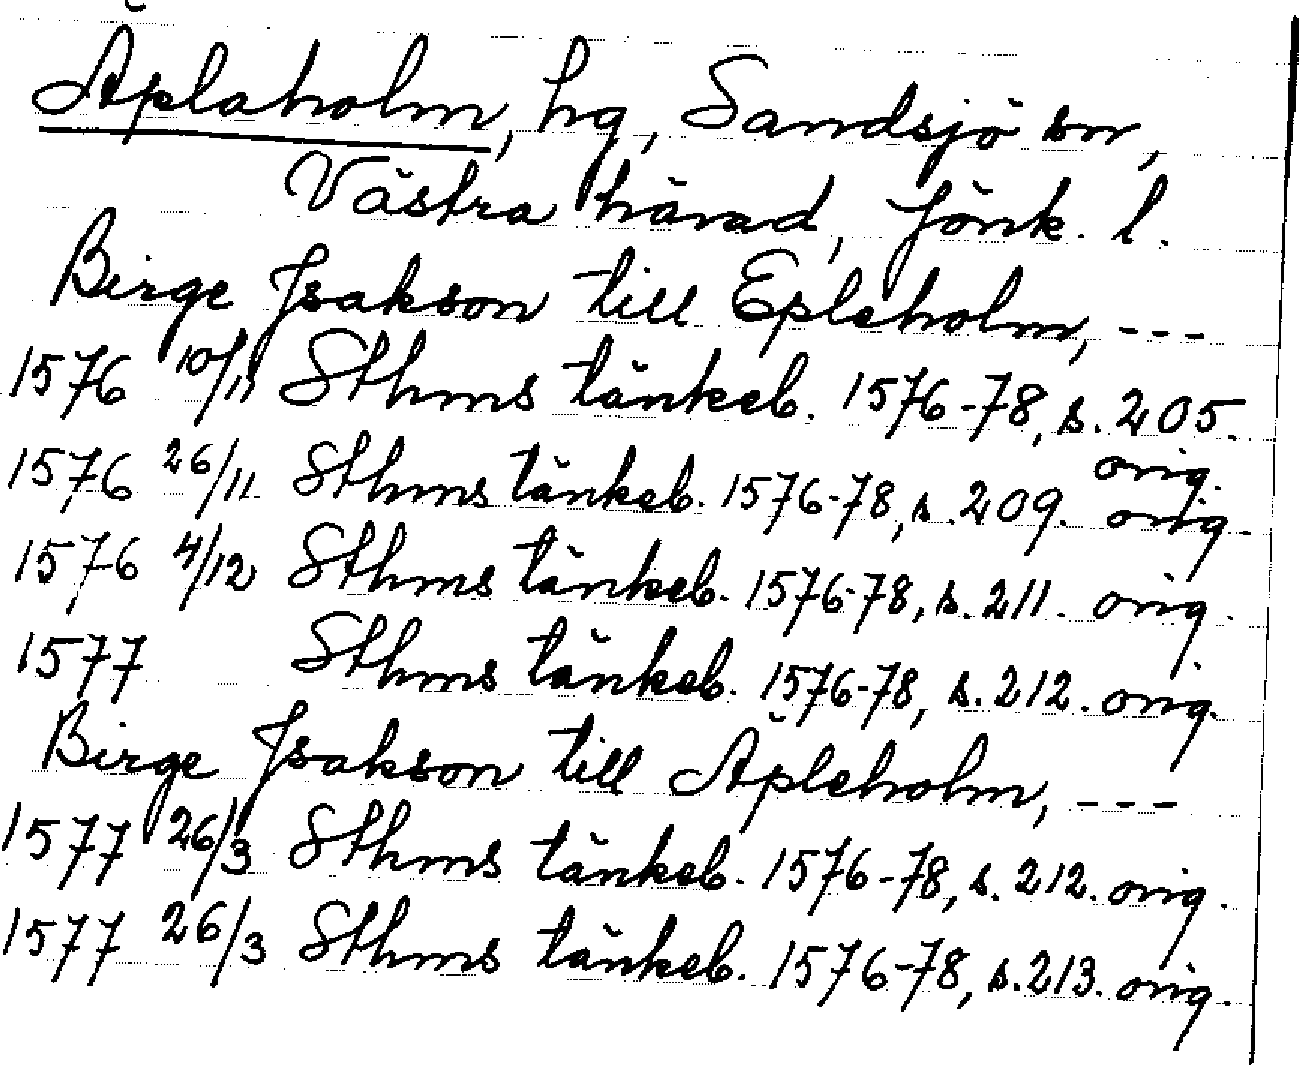 Äplaholm, hg, Sandsjö sn,
Västra härad, Jönk. l.
Birge Jsakson till Epleholm, ---
1576 10/11 Sthms tänkeb. 1576-78, s. 205.
orig.
1576 26/11 Sthms tänkeb. 1576-78, s. 209. orig.
1576 4/12 Sthms tänkeb. 1576-78, s. 211. orig.
1577 Sthms tänkeb. 1576-78, s. 212. orig.
Birge Jsakson till Äpleholm, ---
1577 26/3 Sthms tänkeb. 1576-78, s. 212. orig.
1577 26/3 Sthms tänkeb. 1576-78, s. 213. orig.